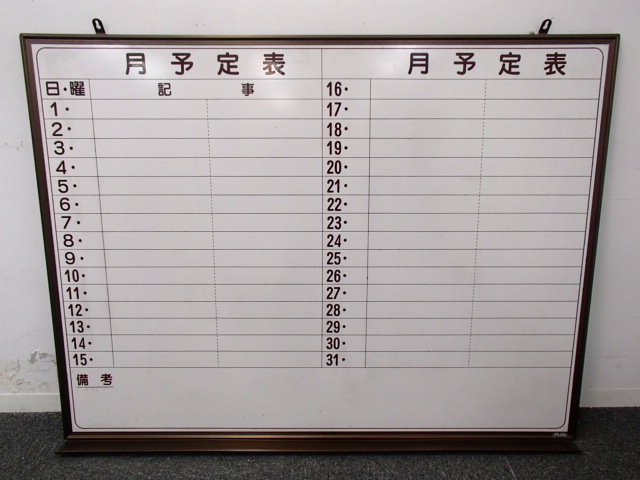 月予定表
日・曜 記事
1・
2・
3・
4・
5・
6・
7・
8・
9・
10・
11・
12・
13・
14・
15・
備考
月予定表
16・
17・
18・
19・
20・
21・
22・
23・
24・
25・
26・
27・
28・
29・
30・
31・
PLUS